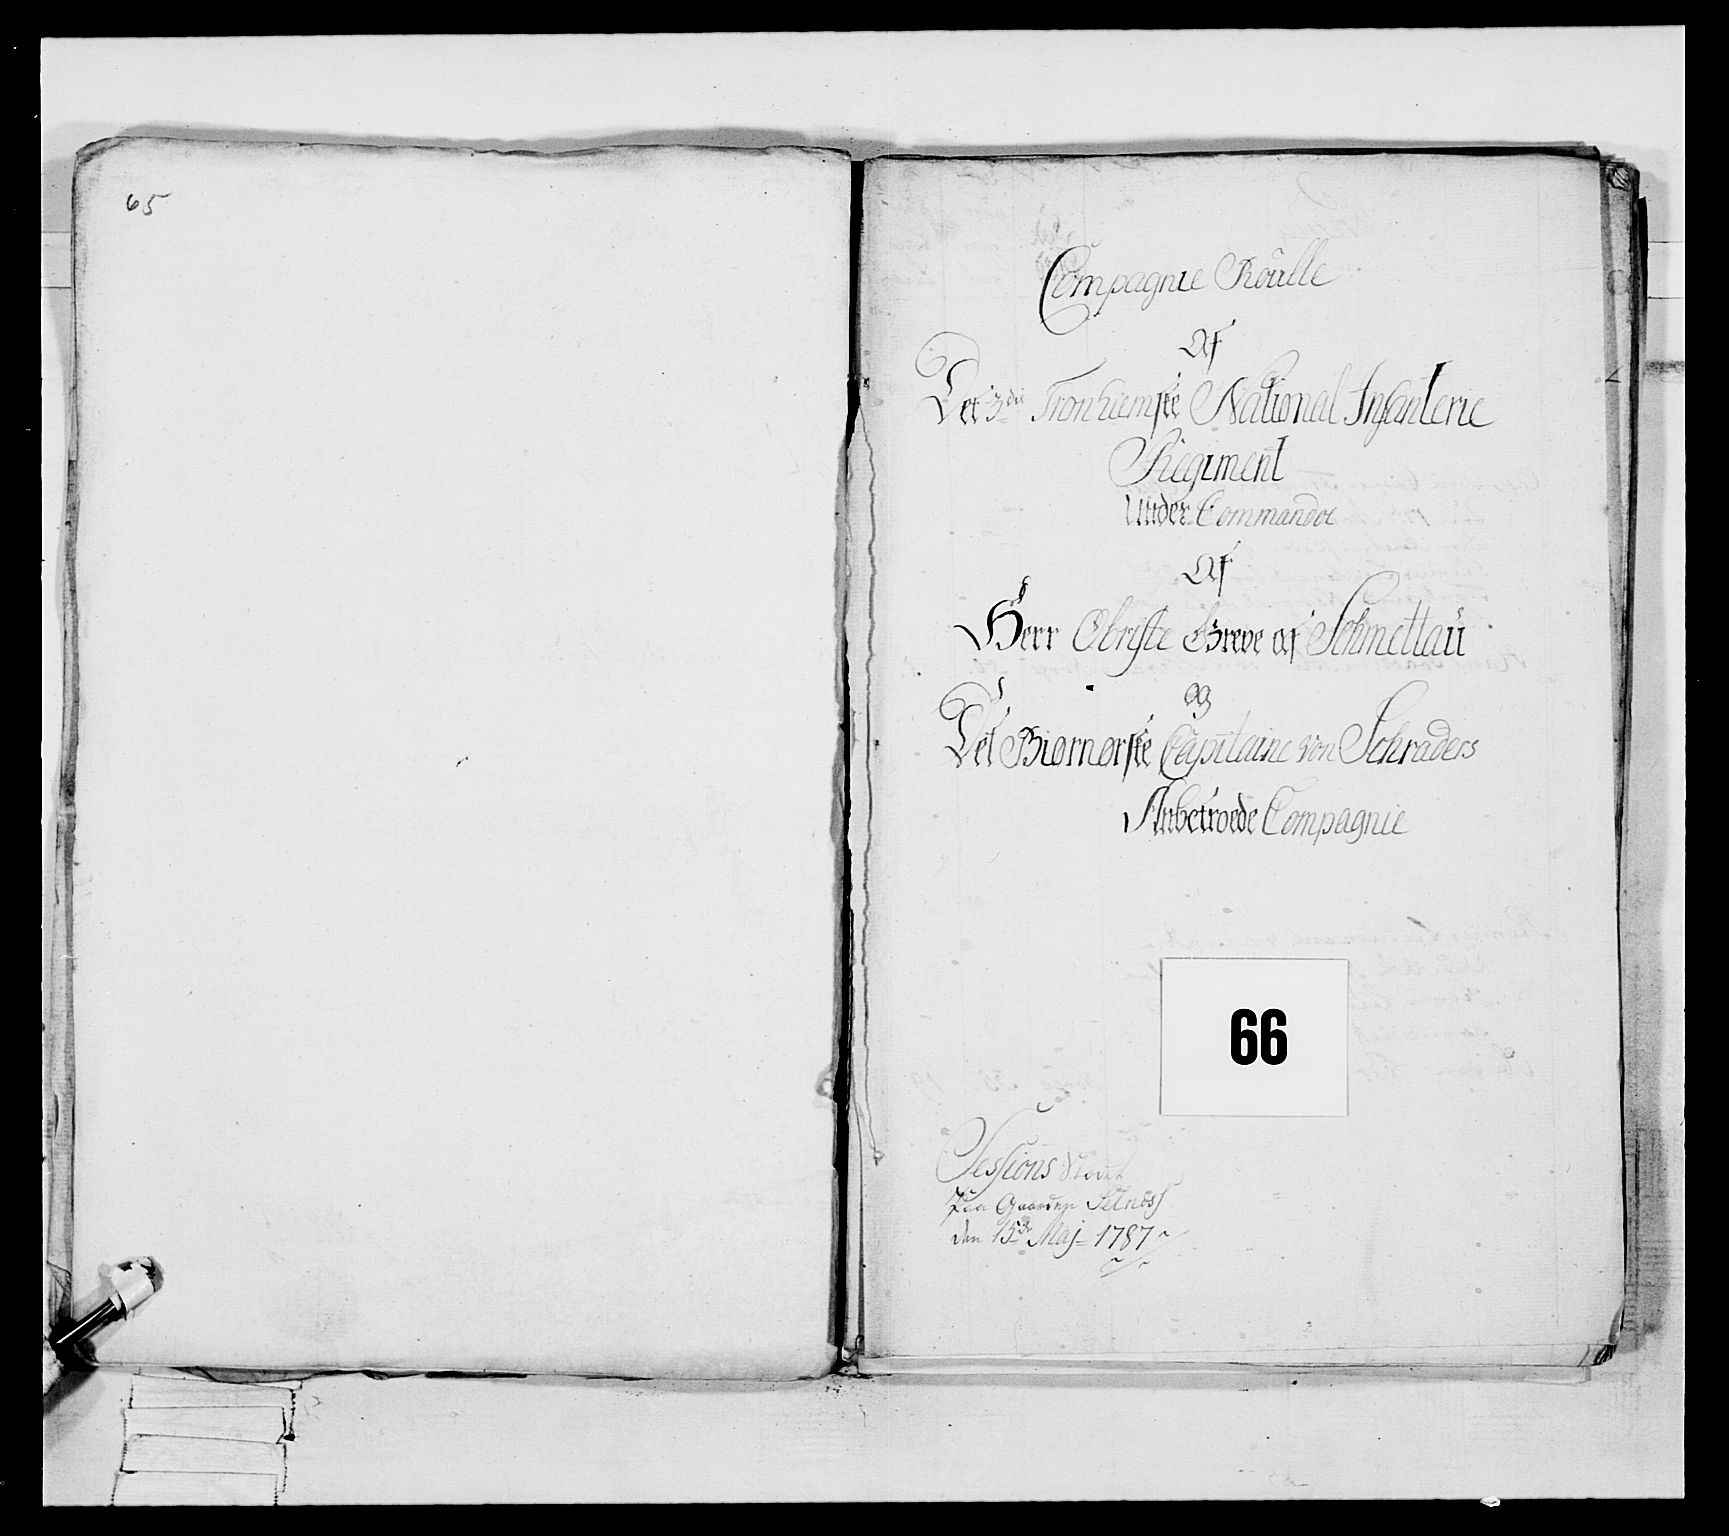 65
Compagnie Roulle
Af
Det 3die Tronhiemske National Infanterie
Regiment
Under Commandoe
Af
Herr Obriste Greve af Schmettau
og
Det Biørnørske Capitaine von Schraders
Anbetroede Compagnie
66
Sessions
Paa Gaarden Selnes
den 15de Maj 1787